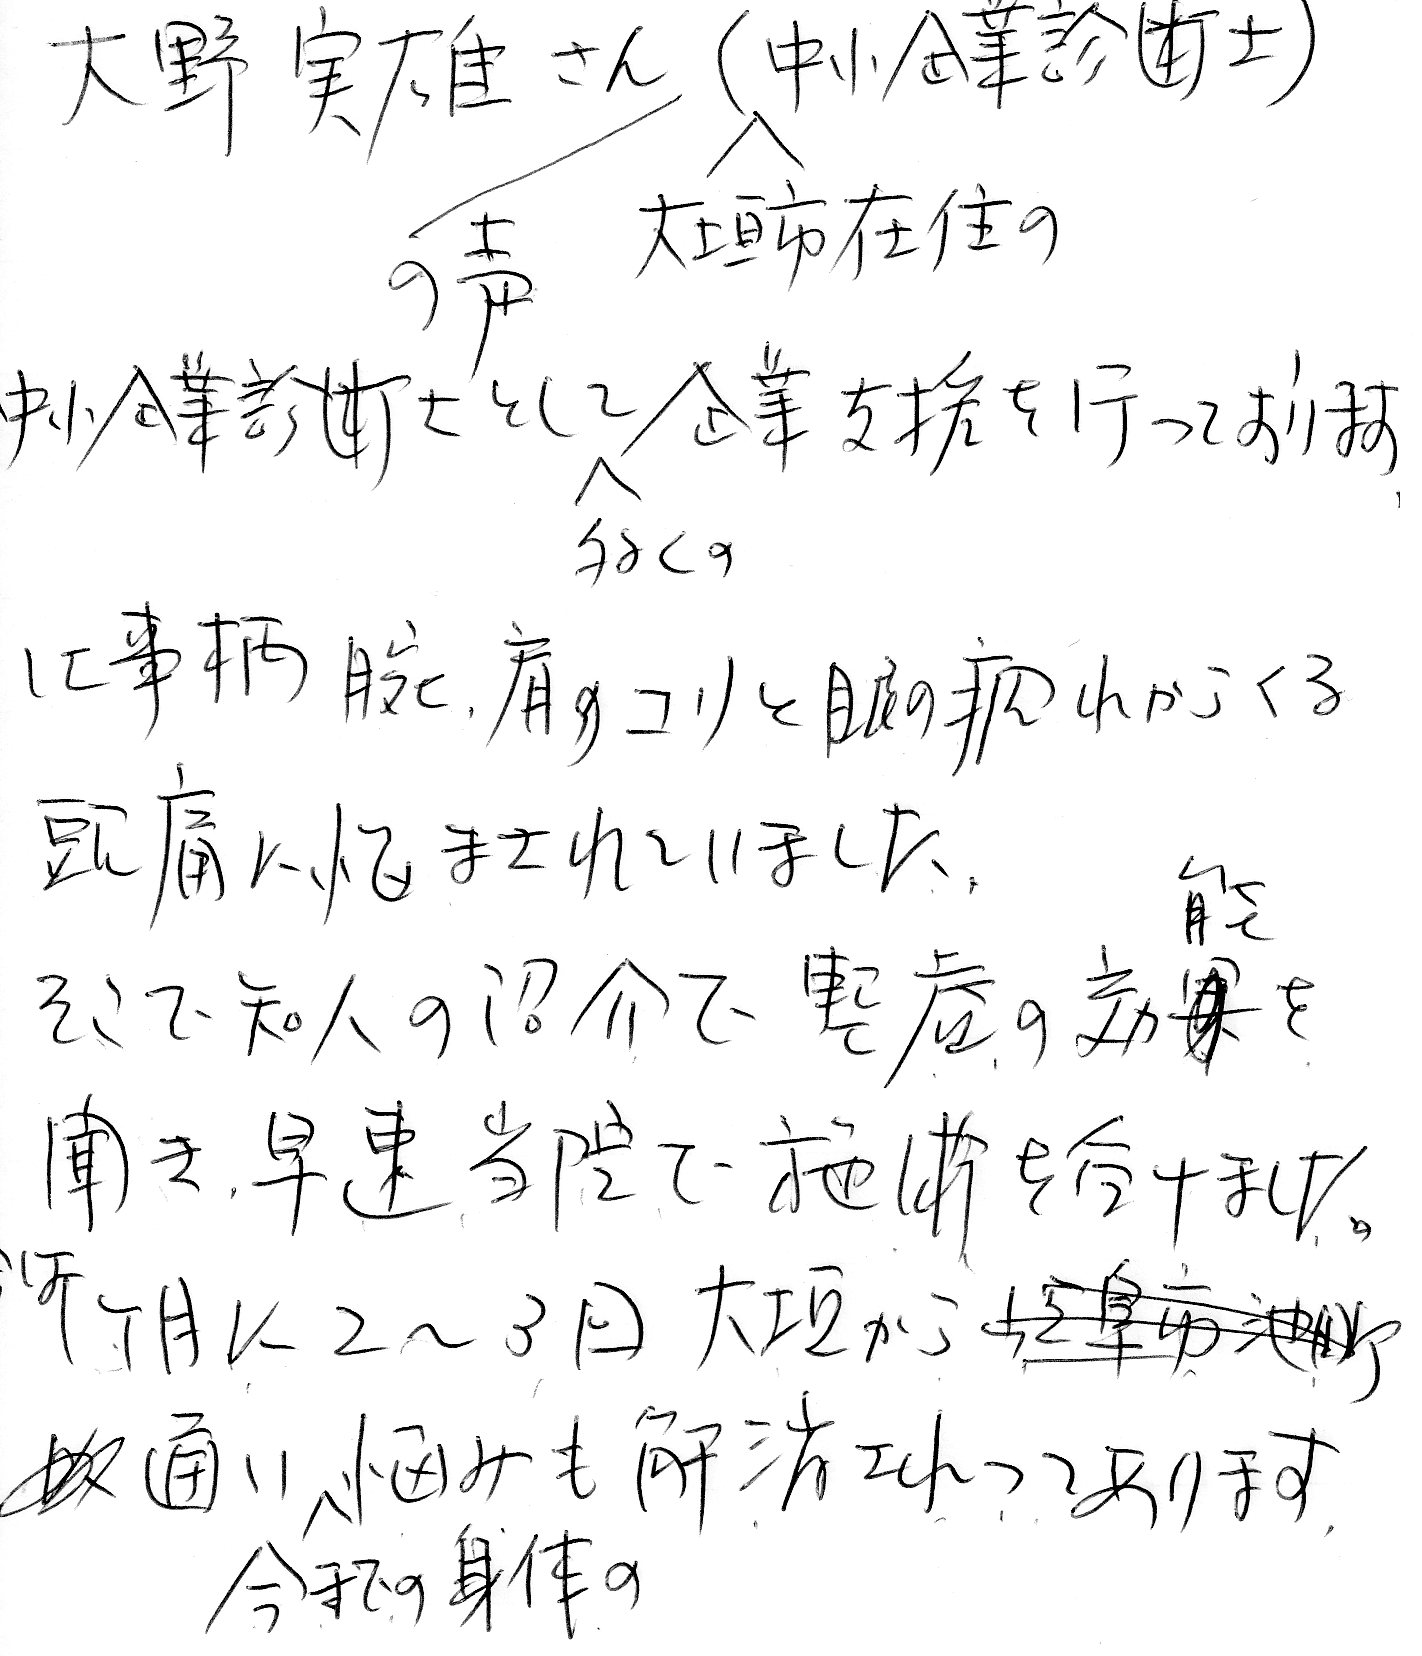 大野実雄さん(中小企業診断士)
の声 大垣市在住の
中小企業診断士として企業支援を行っております、
多くの
仕事柄腕、肩のコリと眼の疲れからくる
頭痛に悩まされていました、
能
そこで知人の紹介で整症の効果を
聞き、早速当院で施術を受けました。
月に2〜3回大垣から岐阜市
通い悩みも解消されつつあります、
今までの身体の